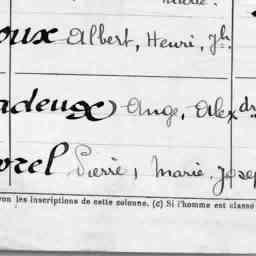 oux Albert, Henri, Jh.
adeux Ange, Alexdr
orel Pierre, Marie, Josep
von les inscriptions de cette colonne. (c) Si l'homme est classé